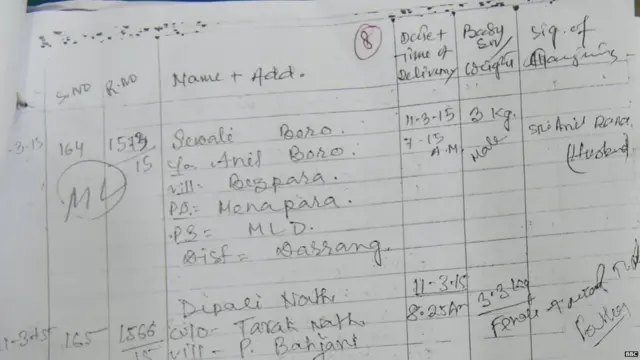 8
S.NO R.NO Name + Add. Date + Time of Delivery Baby Sex Weight Sig. of
.3.15 164 1573/15 Sewali Boro. 11.3.15 3 Kg. Sri Anil
W/o Anil Boro. 7.15 A.M. Male (Husband
ML vill- Bezpara.
P.O= Menapara.
P.S= MLD.
Dist= Darrang.
Dipali Nath. 11.3.15 3.3 Kg
1.3.15 165 1566/15 Tarak Nath 8.25 Am Female
vill- P.
BBC